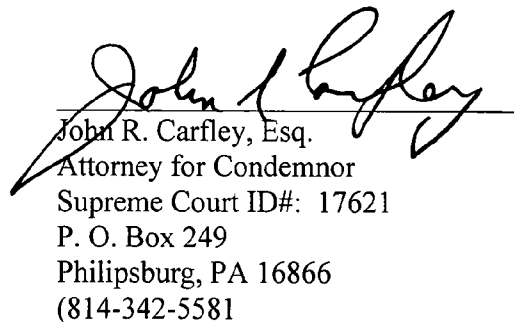 John R Carfley
John R. Carfley, Esq.
Attorney for Condemnor
Supreme Court ID#: 17621
P. O. Box 249
Philipsburg, PA 16866
(814-342-5581